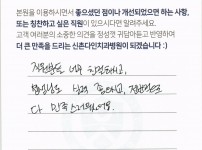 본원을 이용하시면서 좋으셨던 점이나 개선되었으면 하는 사항,
또는 칭찬하고 싶은 직원이 있으시다면 알려주세요.
고객 여러분의 소중한 의견을 정성껏 귀담아듣고 반영하며
더 큰 만족을 드리는 신촌다인치과병원이 되겠습니다 :)
직원분들 너무 친절하시고,
좋으시고, 전체적으로
다 만족스러웠어요.